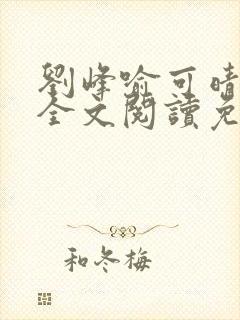 劉峰喻可晴
全文閱讀免
和冬梅